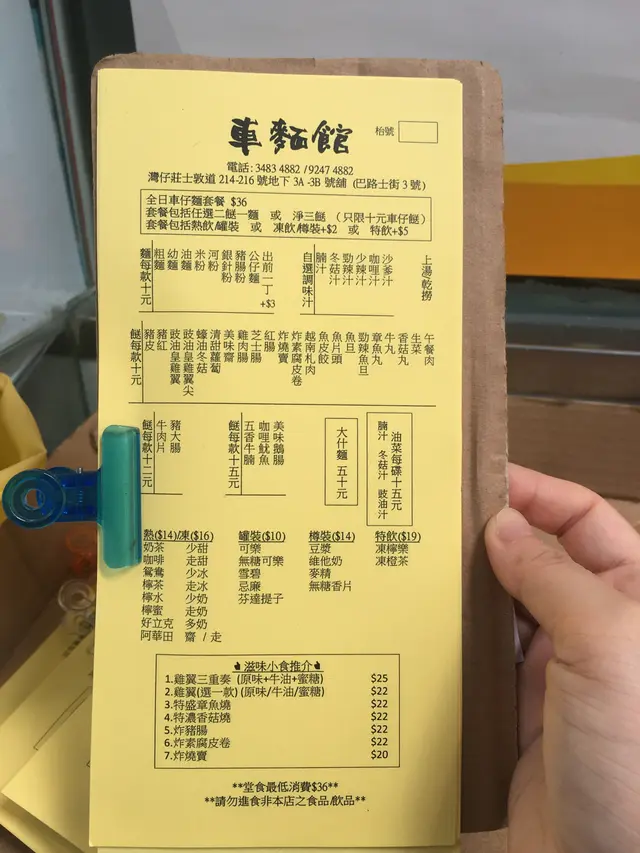 車麵館
枱號
電話：3483 4882 / 9247 4882
灣仔莊士敦道 214-216 號地下 3A -3B 號舖 (巴路士街 3 號)
全日車仔麵套餐 $36
套餐包括任選二餸一麵 或 淨三餸 (只限十元車仔餸)
套餐包括熱飲/罐裝 或 凍飲/樽裝+$2 或 特飲+$5
麵每款十元
粗麵
幼麵
油麵
米粉
河粉
銀針粉
豬腸粉
公仔麵
出前一丁
+$3
自選調味汁
腩汁
冬菇汁
勁辣汁
少辣汁
咖喱汁
沙爹汁
上湯/乾撈
餸每款十元
豬皮
豬紅
豉油皇雞翼
豉油皇雞翼尖
蠔油冬菇
清甜蘿蔔
美味齋
雞肉腸
芝士腸
紅腸
炸燒賣
炸素腐皮卷
越南札肉
魚皮餃
魚片頭
魚旦
勁辣魚旦
章魚丸
牛丸
香菇丸
生菜
午餐肉
餸每款十二元
牛肉片
豬大腸
餸每款十五元
五香牛腩
咖喱魷魚
美味鵝腸
大什麵 五十元
油菜每碟十五元
腩汁 冬菇汁 豉油汁
熱($14)/凍($16) 罐裝($10) 樽裝($14) 特飲($19)
奶茶 少甜 可樂 豆漿 凍檸樂
咖啡 走甜 無糖可樂 維他奶 凍橙茶
鴛鴦 少冰 雪碧 麥精
檸茶 走冰 忌廉 無糖香片
檸水 少奶 芬達提子
檸蜜 走奶
好立克 多奶
阿華田 齋 / 走
滋味小食推介
1.雞翼三重奏 (原味+牛油+蜜糖) $25
2.雞翼(選一款) (原味/牛油/蜜糖) $22
3.特盛章魚燒 $22
4.特濃香菇燒 $22
5.炸豬腸 $22
6.炸素腐皮卷 $22
7.炸燒賣 $20
**堂食最低消費$36**
**請勿進食非本店之食品/飲品**